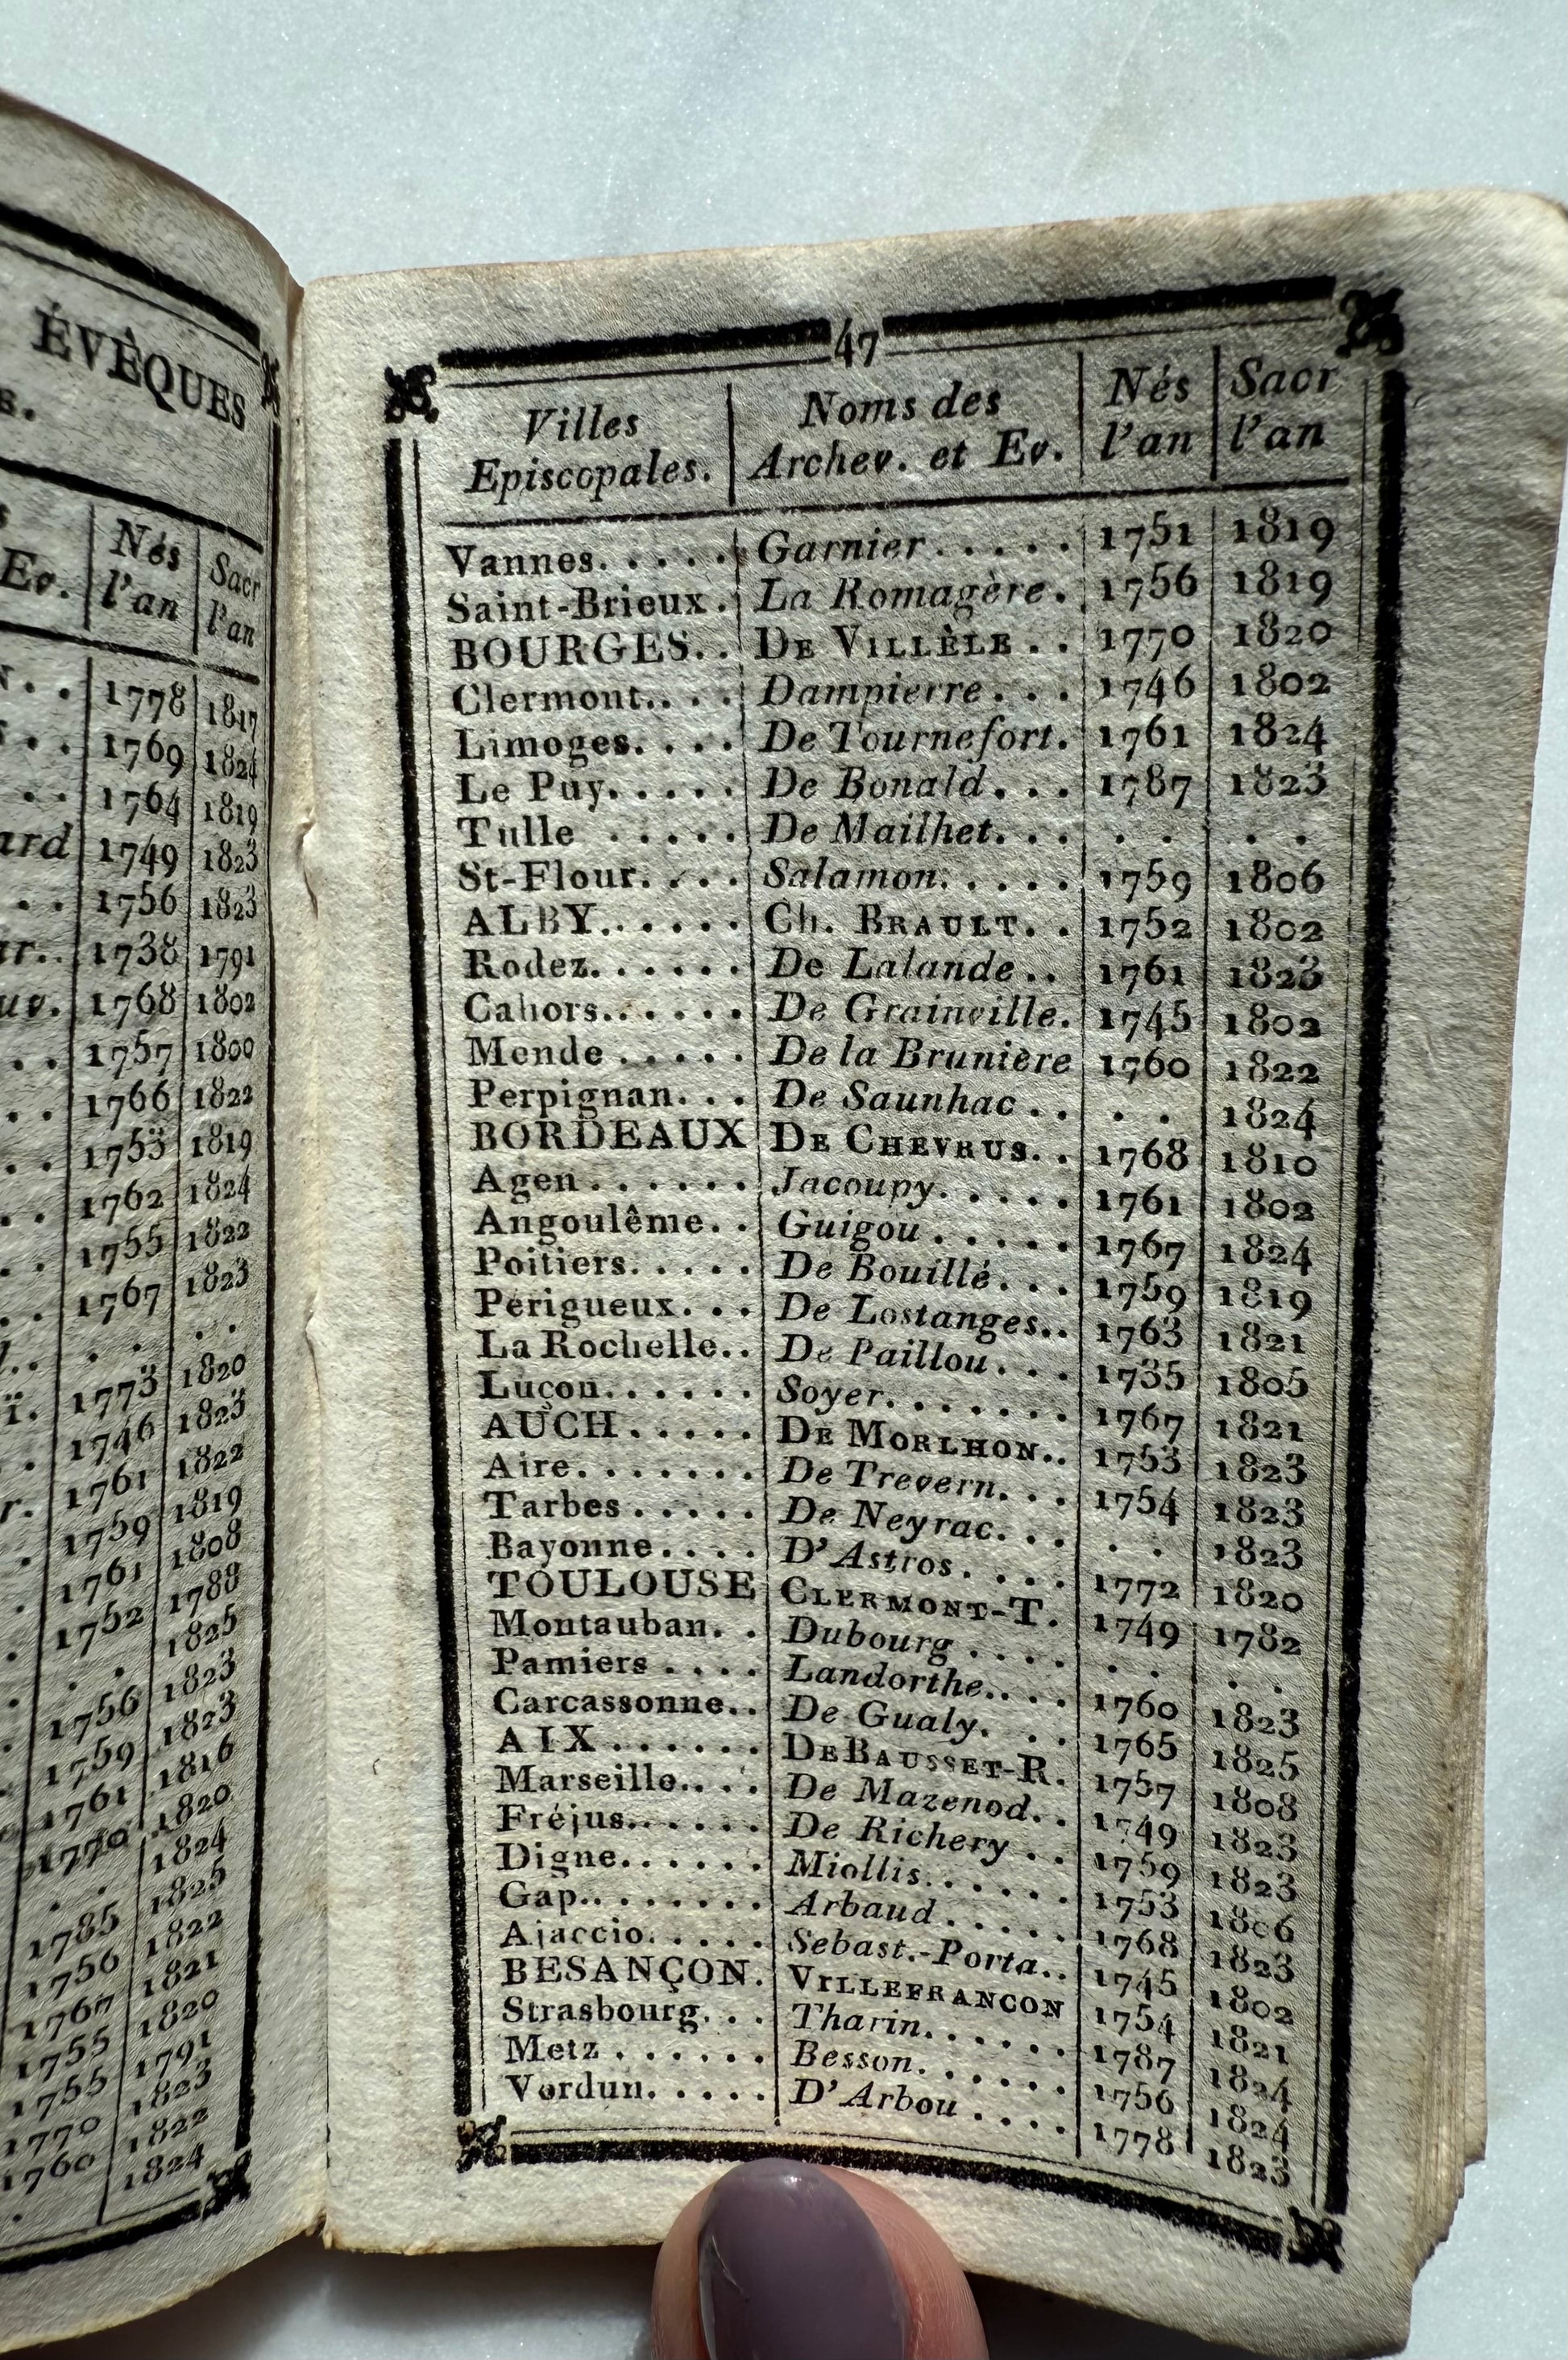 ÉVÊQUES
Nés Sacr
Ev. l'an l'an
. . 1778 1817
. . 1769 1824
. . 1764 1819
ard 1749 1823
. . 1756 1823
r.. 1738 1791
uv. 1768 1802
. . 1757 1800
. . 1766 1822
. . 1753 1819
. . 1762 1824
. . 1755 1822
. . 1767 1823
. . . .
ï. 1773 1820
. 1746 1823
r. 1761 1822
. 1759 1819
. 1761 1808
. 1752 1788
. . 1825
. 1756 1823
. 1759 1823
1761 1816
1770 1820
. . 1824
1785 1825
1756 1822
1767 1821
1755 1820
1755 1791
1770 1823
1760 1822
. 1824
47
Villes Noms des Nés Sacr
Episcopales. Archev. et Ev. l'an l'an
Vannes..... Garnier..... 1751 1819
Saint-Brieux. La Romagère. 1756 1819
BOURGES.. DE VILLÈLE.. 1770 1820
Clermont.... Dampierre... 1746 1802
Limoges.... De Tournefort. 1761 1824
Le Puy..... De Bonald... 1787 1823
Tulle ..... De Mailhet... . . . .
St-Flour.... Salamon..... 1759 1806
ALBY...... Ch. BRAULT.. 1752 1802
Rodez...... De Lalande.. 1761 1823
Cahors...... De Grainville. 1745 1802
Mende ..... De la Brunière 1760 1822
Perpignan... De Saunhac.. . . 1824
BORDEAUX DE CHEVRUS.. 1768 1810
Agen...... Jacoupy..... 1761 1802
Angoulême.. Guigou..... 1767 1824
Poitiers..... De Bouillé... 1759 1819
Périgueux... De Lostanges.. 1763 1821
La Rochelle.. De Paillou... 1735 1805
Luçon...... Soyer....... 1767 1821
AUCH..... DE MORLHON.. 1753 1823
Aire....... De Trevern... 1754 1823
Tarbes..... De Neyrac... . . 1823
Bayonne.... D'Astros.... 1772 1820
TOULOUSE CLERMONT-T. 1749 1782
Montauban.. Dubourg.... . . . .
Pamiers.... Landorthe.... 1760 1823
Carcassonne.. De Gualy... 1765 1825
AIX...... DE BAUSSET-R. 1757 1808
Marseille.... De Mazenod.. 1749 1823
Fréjus...... De Richery.. 1759 1823
Digne...... Miollis...... 1753 1806
Gap....... Arbaud.... 1768 1823
Ajaccio..... Sebast.-Porta.. 1745 1802
BESANÇON. VILLEFRANCON 1754 1821
Strasbourg... Tharin..... 1787 1824
Metz...... Besson...... 1756 1824
Verdun..... D'Arbou.... 1778 1823